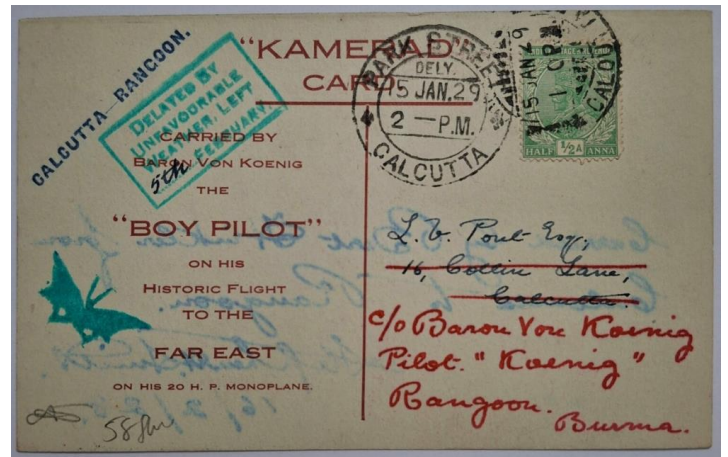 CALCUTTA-RANGOON.
DELAYED BY
UNFAVOURABLE
WEATHER. LEFT
5th FEBRUARY.
"KAMERAD"
CARD
CARRIED BY
BARON VON KOENIG
THE
"BOY PILOT"
ON HIS
HISTORIC FLIGHT
TO THE
FAR EAST
ON HIS 20 H. P. MONOPLANE.
PARK STREET
DELY.
15 JAN. 29
2 - P.M.
CALCUTTA
15 JAN 29
CALCUTTA
HALF ½A ANNA
L. V. Pont Esq,
16, Collin Lane,
Calcutta.
c/o Baron Von Koenig
Pilot. "Koenig"
Rangoon.
Burma.